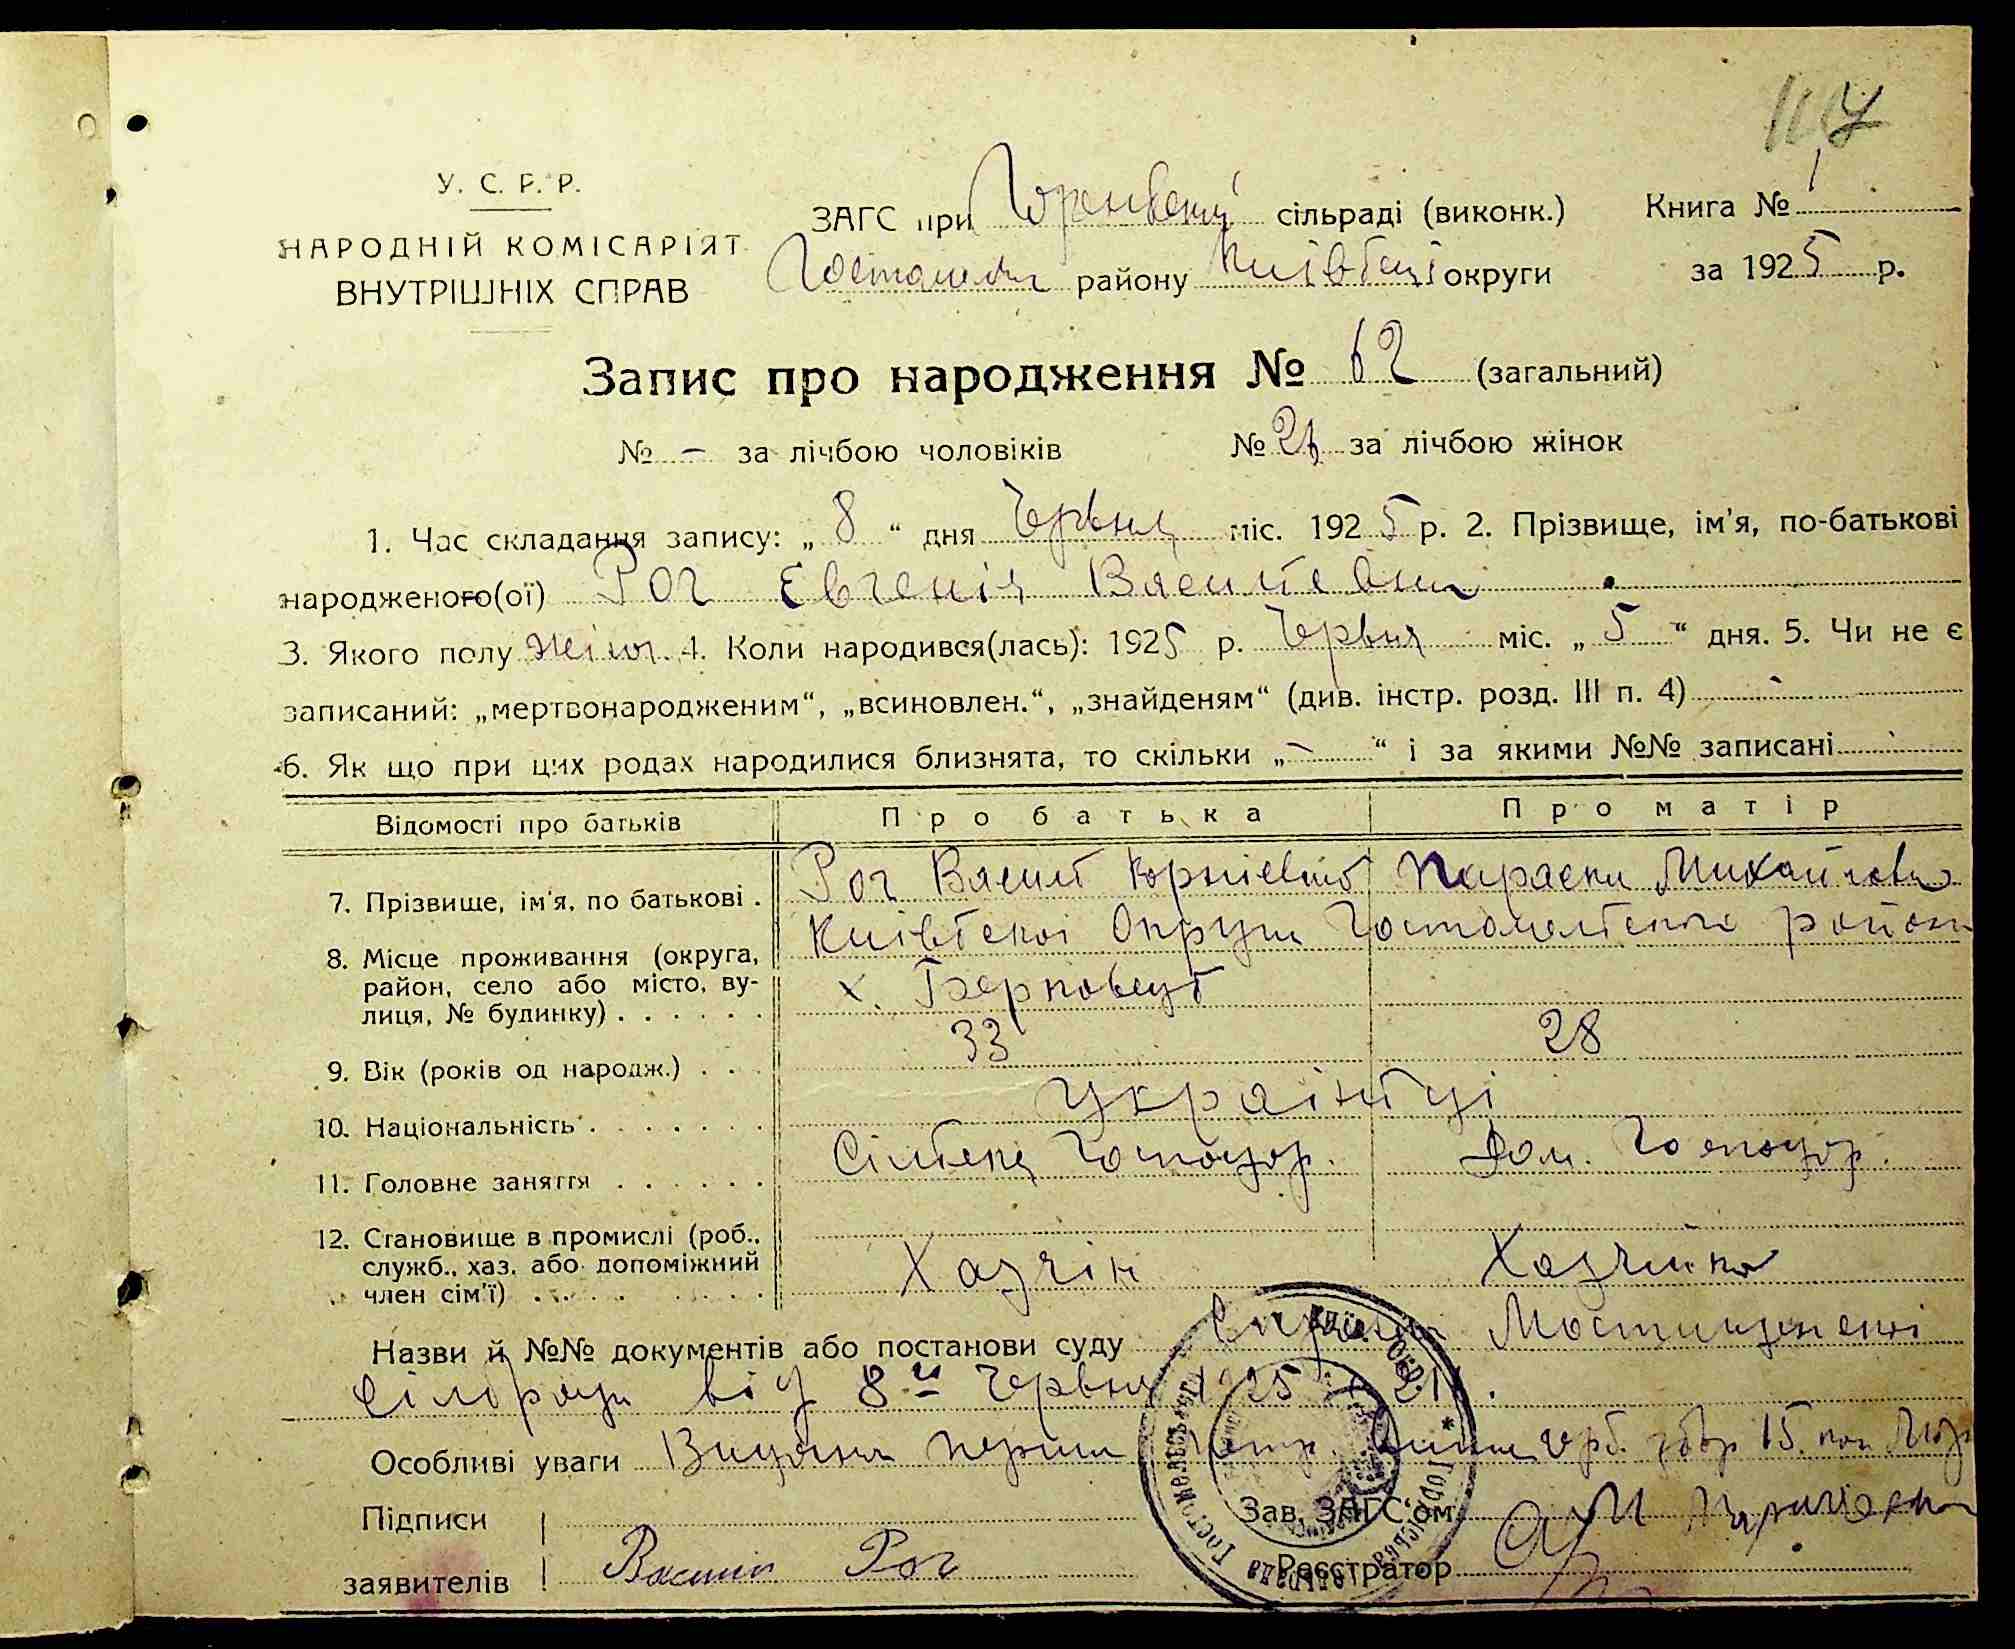 117
У. С. Р. Р.
НАРОДНІЙ КОМІСАРІЯТ
ВНУТРІШНІХ СПРАВ
ЗАГС при Горенській сільраді (виконк.) Книга № 1
району Київської округи за 1925 р.
Запис про народження № 62 (загальний)
№ – за лічбою чоловіків № за лічбою жінок
1. Час складання запису: „ 8 “ дня Червня міс. 1925 р. 2. Прізвище, ім'я, по-батькові
народженого(ої) Рог Євгенія Василевна
3. Якого полу жіноч. 4. Коли народився(лась): 1925 р. Червня міс. „ 5 “ дня. 5. Чи не є
записаний: „мертвонародженим“, „всиновлен.“, „знайденям“ (див. інстр. розд. III п. 4) -
6. Як що при цих родах народилися близнята, то скільки „ – “ і за якими №№ записані
Відомості про батьків Про батька Про матір
7. Прізвище, ім'я, по батькові . Рог Василь Корнієвич Параска Михайловна
8. Місце проживання (округа, район, село або місто, вулиця, № будинку) . . . . . . Київської Округи Гостомельського району
х. Берковець
9. Вік (років од народж.) . . . 33 28
10. Національність . . . . . . . українці
11. Головне заняття . . . . . . Сільське Господар. Дом. Господар.
12. Становище в промислі (роб., служб., хаз. або допоміжний член сім'ї) . . . . . . . . Хазяїн Хазяйка
Назви й №№ документів або постанови суду Мостищенської
сілради від 8го Червня 1925 р.
Особливі уваги Видана перша
Підписи
заявителів Василь Рог
Зав. ЗАГС'ом
Реєстратор